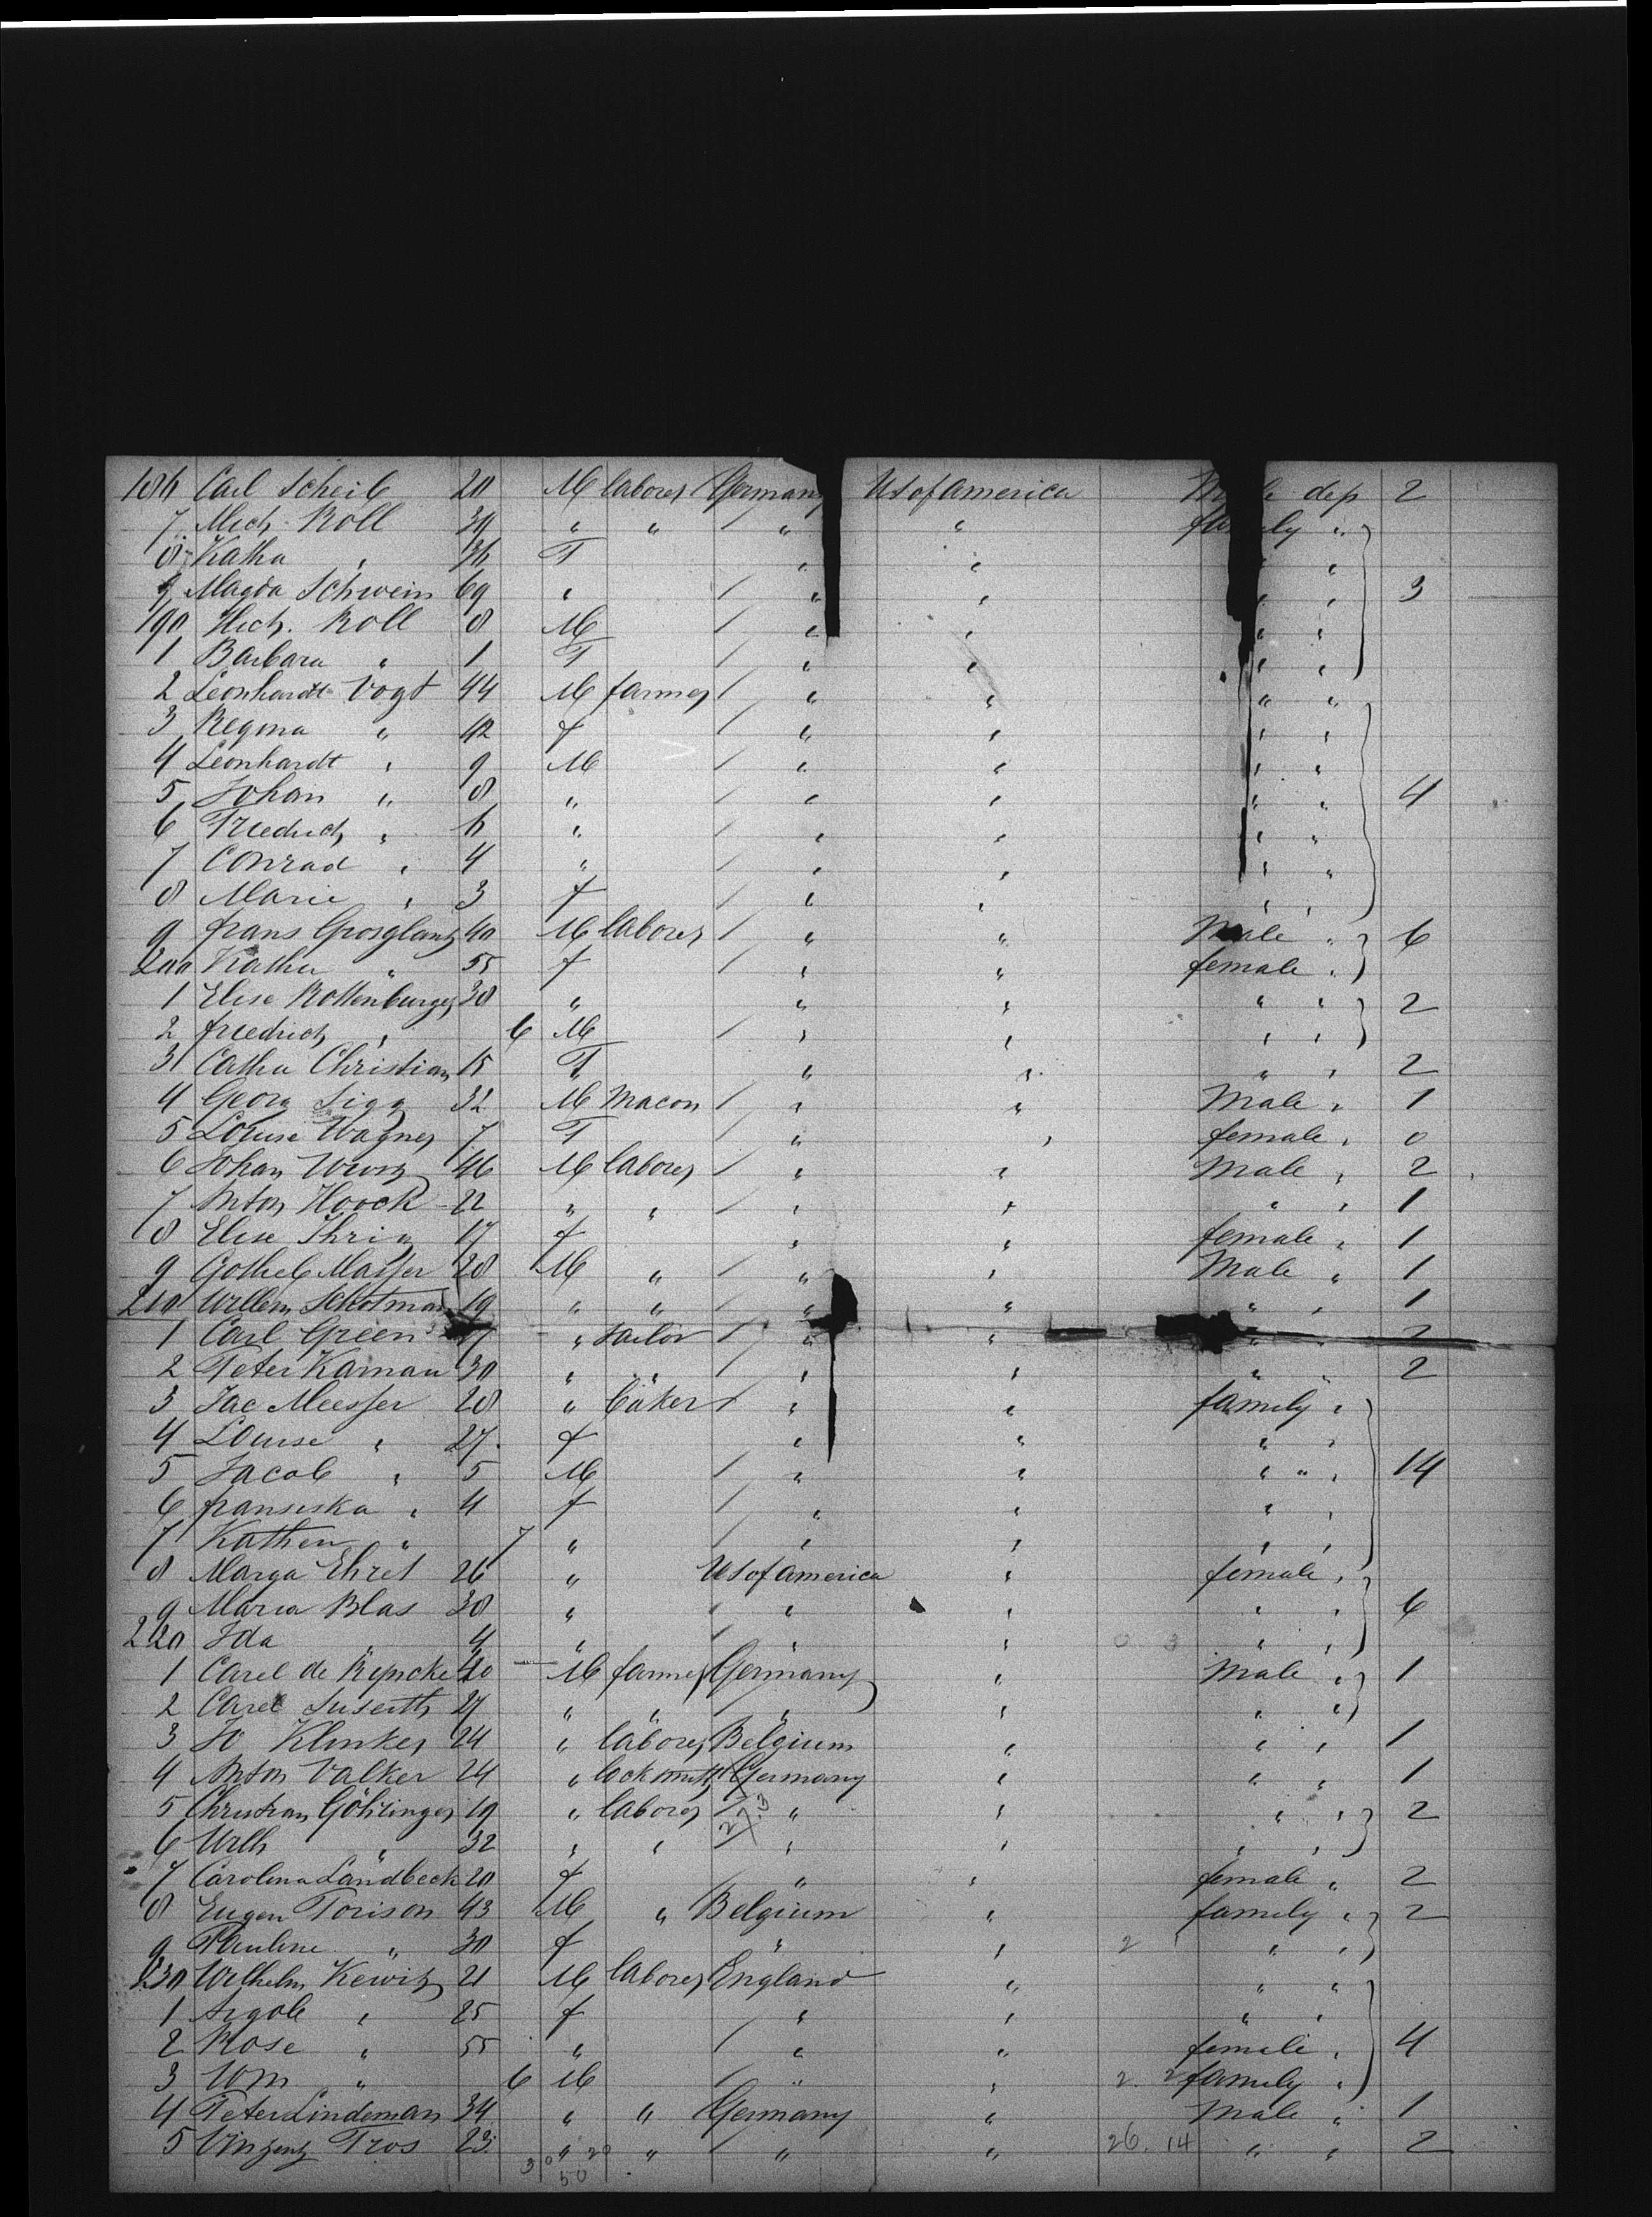 186 Carl Scheib 20 M labores Germany Us of America Male dep 2
7 Mich. Roll 39 " " / " " family "
8 Katha " 36 F " " " "
9 Magda Schwein 69 " / " " " " 3
190 Mich. Roll 8 M / " " " "
1 Barbara " 1 F / " " " "
2 Leonhardt Vogt 44 M farmer / " " " "
3 Regina " 42 f / " " " "
4 Leonhardt " 9 M / " " " "
5 Johan " 8 " / " " " " 4
6 Friedrich " 6 " / " " " "
7 Conrad " 4 " / " " " "
8 Marie " 3 f / " " " "
9 frans Grosglanz 40 M labores / " " Male " 6
200 Katha " 55 f / " " female "
1 Elise Rottenburges 38 " " " " " 2
2 friedrich " 6 M / " " " "
3 Catha Christian 15 F " " " " 2
4 Georg Sigg 32 M Macon / " " Male " 1
5 Louise Wagner 7 F " " female " 0
6 Johan 46 M labores / " " Male " 2
7 Anton Hoock 22 " " / " " " " 1
8 Elise Ihrig 17 f " " female " 1
9 Gottlieb Maiser 28 M " / " " Male " 1
210 Willem Schotman 19 " " / " " " " 1
1 Carl Green 17 " Tailor / " " " " 2
2 Peter Karnau 30 " " / " " " " 2
3 Jac Meesser 28 " baker / " " family "
4 Louise " 27 f " " " "
5 Jacob " 5 M / " " " " 14
6 fransiska " 4 f / " " " "
7 Kathen " 7 " / " " " "
8 Marga Ehret 26 " Us of America " female "
9 Maria Blas 38 " / " " " " 6
220 Ida " 4 " / " " 0 3 " "
1 Carel de Rijncke 40 M farmer Germany " Male " 1
2 Carel Suseith 27 " " / " " " "
3 Jo Klinkes 24 " labores Belgium " " " 1
4 Anton Valker 24 " locksmith Germany " " " 1
5 Christian Göhringer 19 " labores / " " " " 2
6 Wilh " 32 " " / " " " "
7 Carolina Landbeck 20 f " " female " 2
8 Eugen Torison 43 M " Belgium " family " 2
9 Pauline " 30 f " " 2 1 " "
230 Wilhelm Kewitz 21 M labores England " " "
1 " 25 f " " " "
2 Rose " 55 " / " " female " 4
3 Wm " 6 M / " " 2. 2 family "
4 Peter Lindeman 34 " " Germany " Male " 1
5 Vinzenz Tros 23 " " / " " 26. 14 " " 2
30 20
50